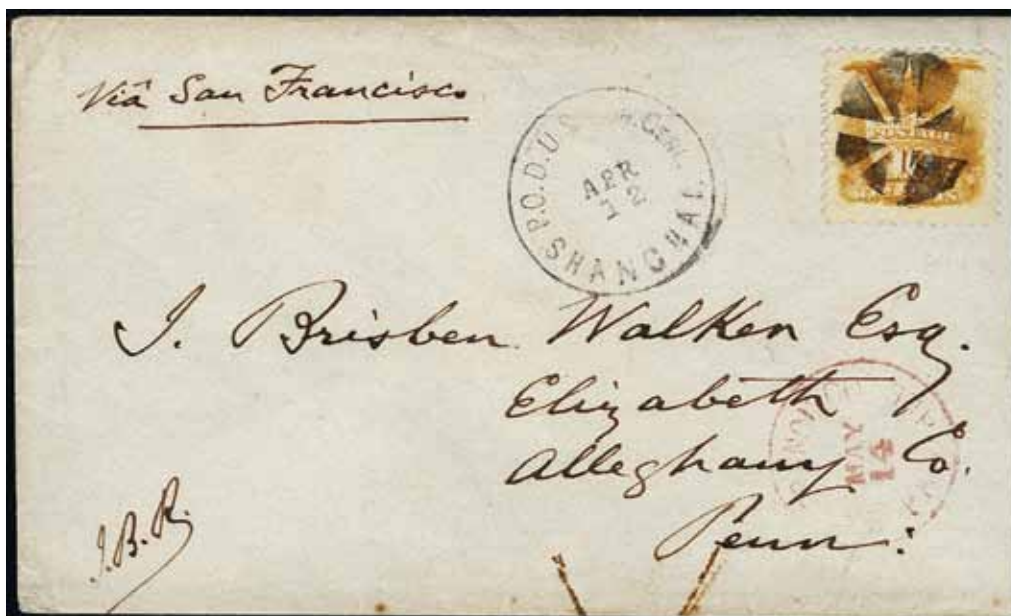 Via San Francisco
P.O.D. U.S. GENL.
APR
12
SHANGHAI
POSTAGE
J. Brisben Walker Esq.
Elizabeth
Alleghany Co.
Penn:
MAY
14
J.B.R.